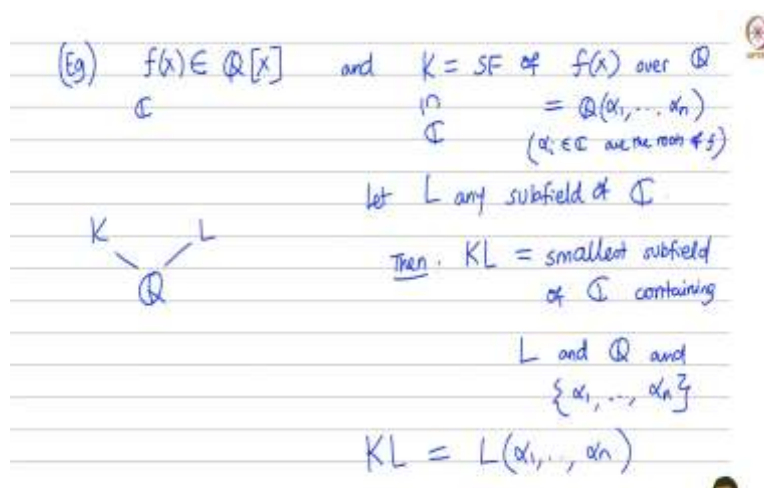 (Eg) f(x) ∈ ℚ[x] and K = SF of f(x) over ℚ
ℂ ∩ = ℚ(α₁, ... αₙ)
ℂ (αᵢ ∈ ℂ are the roots of f)
Let L any subfield of ℂ.
K L
Then. KL = smallest subfield
ℚ of ℂ containing
L and ℚ and
{α₁, ..., αₙ}
KL = L(α₁, .., αₙ)